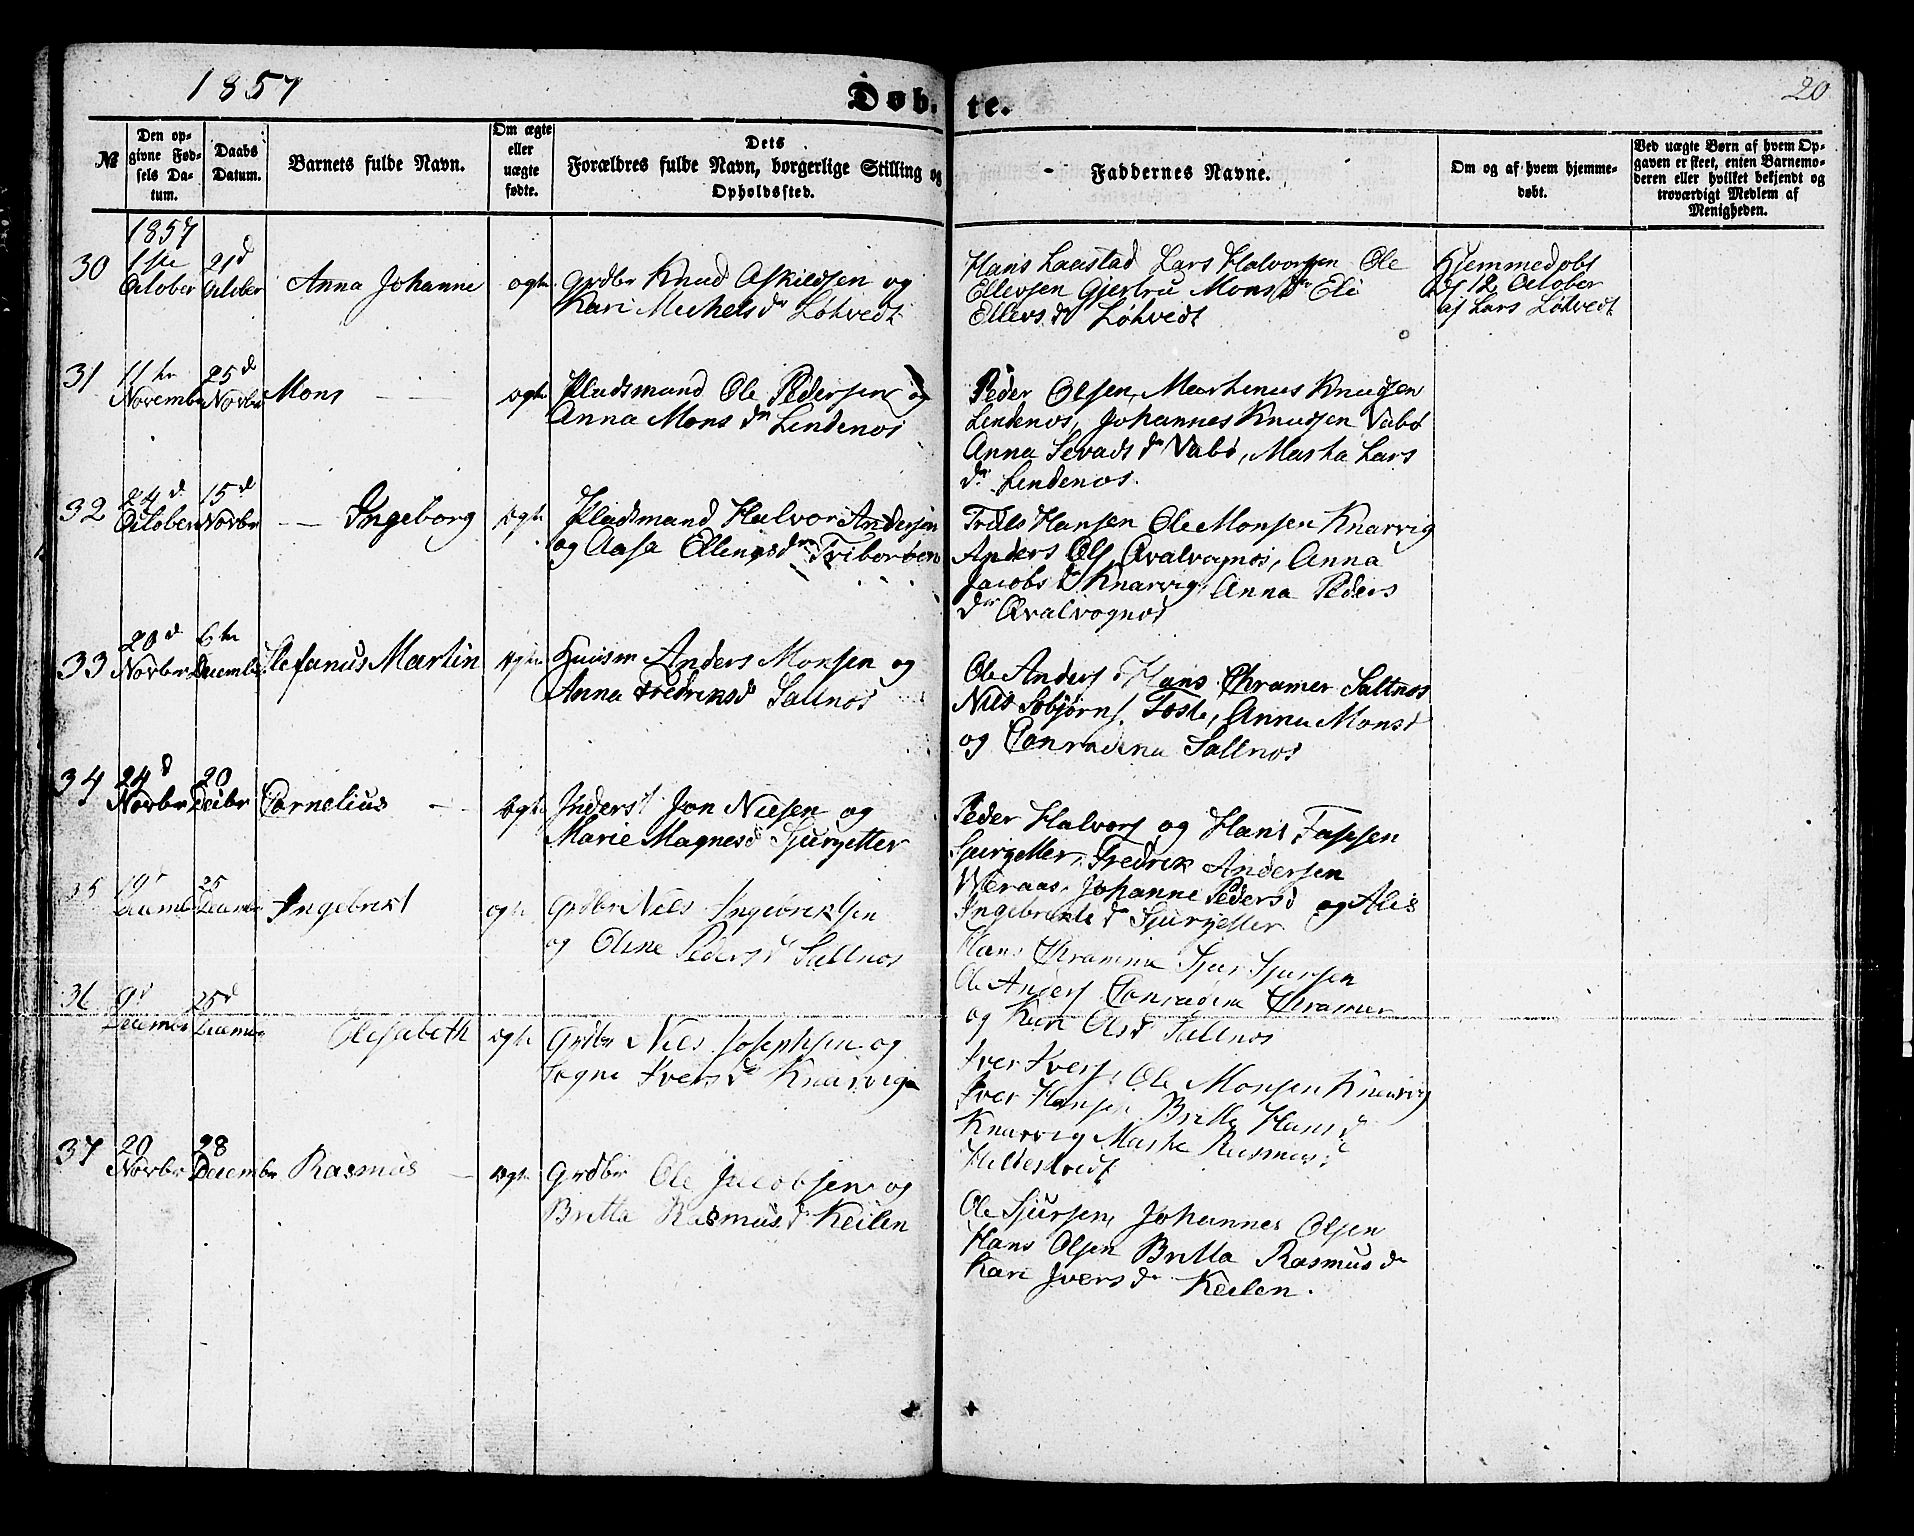 1857
Døb-
te.
20
№
Den op-
givne Fød-
sels Da-
tum.
Daabs
Datum.
Barnets fulde Navn.
Om ægte
eller
uægte
fødte.
Dets
Forældres fulde Navn, borgerlige Stilling og
Opholdssted.
Faddernes Navne.
Om og af hvem hjemme-
døbt.
Ved uægte Børn af hvem Op-
gaven er skeet, enten Barnemo-
deren eller hvilket bekjendt og
troværdigt Medlem af
Menigheden.
1857
30
1ste
October
21d
October
Anna Johanne
ægte
Grdbr Knud Askildsen og
Kari Michelsdr Løtvedt
Hans Laastad Lars Halvorsen Ole
Ellevsen Gjertru Monsdr Eli
Ellevsdr Løtvedt
Hjemmedøbt
12 October
af Lars Løtvedt
31
11te
Novembr
25d
Novbr
Mons
ægte
Pladsmand Ole Pedersen og
Anna Monsdr Lindenæs
Peder Olsen, Marthinus Knudsen
Lindenæs, Johannes Knudsen Vabø
Anna Sevadsdr Vabø, Martha Lars
dr Lindenæs.
32
24d
October
15d
Novbr
Ingeborg
ægte
Pladsmand Halvor Andersen
og Aase Ellingsdr
Truls Hansen Ole Monsen Knarvig
Anders Ols. Qvalvognæs, Anna
Jacobsdr Knarvig, Anna Peders
dr Qvalvognæs
33
20d
Novbr
6te
Decembr
Stefanus Martin
ægte
Huusm Anders Monsen og
Anna Fredriksd Saltnæs
Ole Anders. Hans Chramer Saltnæs
Nils Toste, Anna Monsd
og Conradina Saltnæs
34
24d
Novbr
20
Decbr
Cornelius
ægte
Inderst Jon Nilsen og
Marie Magnesd Sjursetter
Peder Halvors. og Hans
Sjursetter, Fredrik Andersen
Weraas, Johanne Pedersd og Alis
Ingebrektsd Sjursetter
35
19d
Decembr
25
Decembr
Ingebrekt
ægte
Grdbr Nils Ingebrektsen
og Oline Pedersd Saltnæs
Hans Chramer Sjur Sjursen
Ole Anders. Conradine Chramer
og Kari Olsd Saltnæs
36
9d
Decembr
25d
Decembr
Elisabeth
ægte
Grdbr Nils Josephsen og
Iversd Knarvig
Iver Ivers. Ole Monsen Knarvig
Iver Hansen Britta Hansd
Knarvig Martha Rasmusd
37
20
Novbr
28
Decembr
Rasmus
ægte
Grdbr Ole Jacobsen og
Britta Rasmusdr Keilen
Ole Sjursen, Johannes Olsen
Hans Olsen Britta Rasmusdr
Kari Iversdr Keilen.